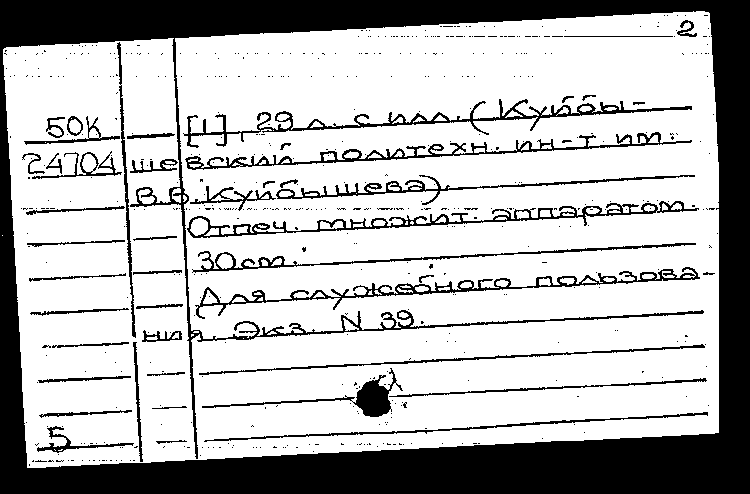 2
50К [1], 29 л. с илл. (Куйбы-
24704 шевский политехн. ин-т. им.
В.В. Куйбышева).
Отпеч. множит. аппаратом.
30cm.
Для служебного пользова-
ния. Экз. N 39.
5